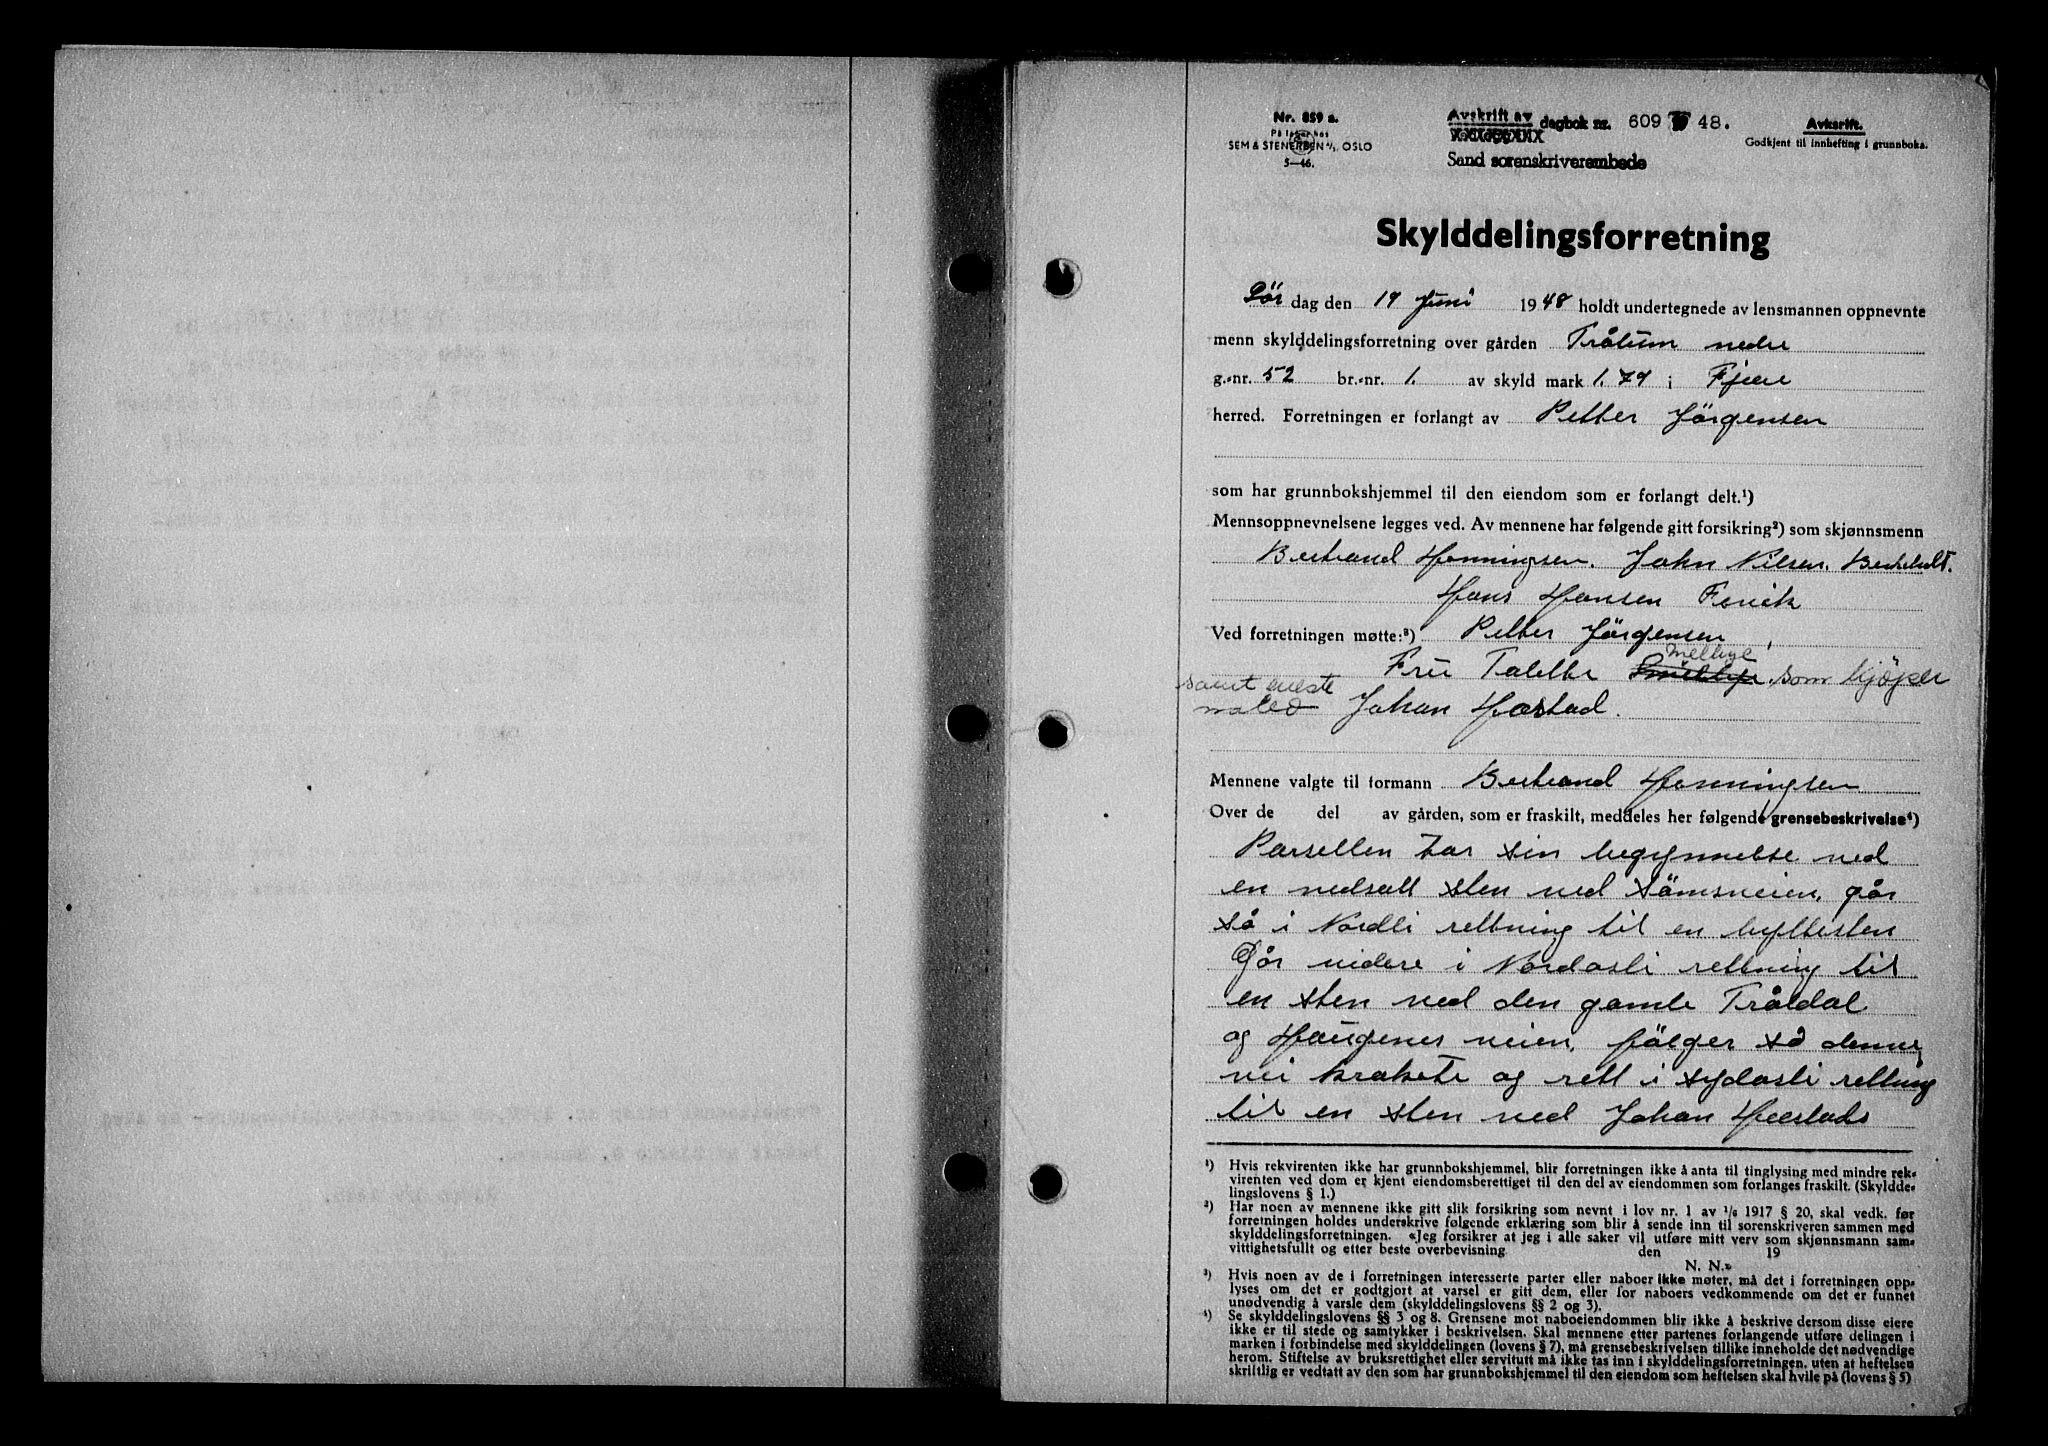 Nr. 859 a.
På lager hos
SEM & STENERSEN A/S, OSLO
5—46.
Avskrift av
dagbok nr. 609 48.
Sand sorenskriverembede
Avksrift.
Godkjent til innhefting i grunnboka.
Skylddelingsforretning
Lör dag den 19 Juni 1948 holdt undertegnede av lensmannen oppnevnte
menn skylddelingsforretning over gården Tråtum nedre
g.-nr. 52 br.-nr. 1. av skyld mark 1.79 i Fjære
herred. Forretningen er forlangt av Petter Jörgensen
som har grunnbokshjemmel til den eiendom som er forlangt delt.¹)
Mennsoppnevnelsene legges ved. Av mennene har følgende gitt forsikring²) som skjønnsmenn
Bertrand Henningsen. John Nilsen.
Hans Hansen Fevik
Ved forretningen møtte:³) Petter Jörgensen,
Fru Talette Melbye som kjöper
samt
Johan Hæstad.
Mennene valgte til formann Bertrand Henningsen
Over de del av gården, som er fraskilt, meddeles her følgende grensebeskrivelse⁴)
Parsellen tar sin begynnelse ved
en nedsatt sten ved Sömsveien, går
så i Nordli rettning til en byttesten
Går videre i Nordostli rettning til
en sten ved den gamle Tråldal
og Haugenes veien, fölger så denne
vei krokete og rett i sydostli rettning
til en sten ved Johan Hæstads
¹) Hvis rekvirenten ikke har grunnbokshjemmel, blir forretningen ikke å anta til tinglysing med mindre rek-
virenten ved dom er kjent eiendomsberettiget til den del av eiendommen som forlanges fraskilt. (Skyldde-
lingslovens § 1.)
²) Har noen av mennene ikke gitt slik forsikring som nevnt i lov nr. 1 av 1/6 1917 § 20, skal vedk. før
forretningen holdes underskrive følgende erklæring som blir å sende inn til sorenskriveren sammen med
skylddelingsforretningen. «Jeg forsikrer at jeg i alle saker vil utføre mitt verv som skjønnsmann sam-
vittighetsfullt og etter beste overbevisning den 19
N. N.»
³) Hvis noen av de i forretningen interesserte parter eller naboer ikke møter, må det i forretningen opp-
lyses om det er godtgjort at varsel er gitt dem, eller for naboers vedkommende om det er funnet
unødvendig å varsle dem (skylddelingslovens §§ 2 og 3).
⁴) Se skylddelingslovens §§ 3 og 8. Grensene mot naboeiendommen blir ikke å beskrive dersom disse eiere
ikke er til stede og samtykker i beskrivelsen. Skal mennene etter partenes forlangende utføre delingen i
marken i forbindelse med skylddelingen (lovens § 7), må grensebeskrivelsen tillike inneholde det nødvendige
herom. Stiftelse av bruksrettighet eller servitutt må ikke tas inn i skylddelingsforretningen, uten at heftelsen
skriftlig er vedtatt av den som har grunnbokshjemmel til den eiendom som heftelsen skal hvile på (lovens § 5)